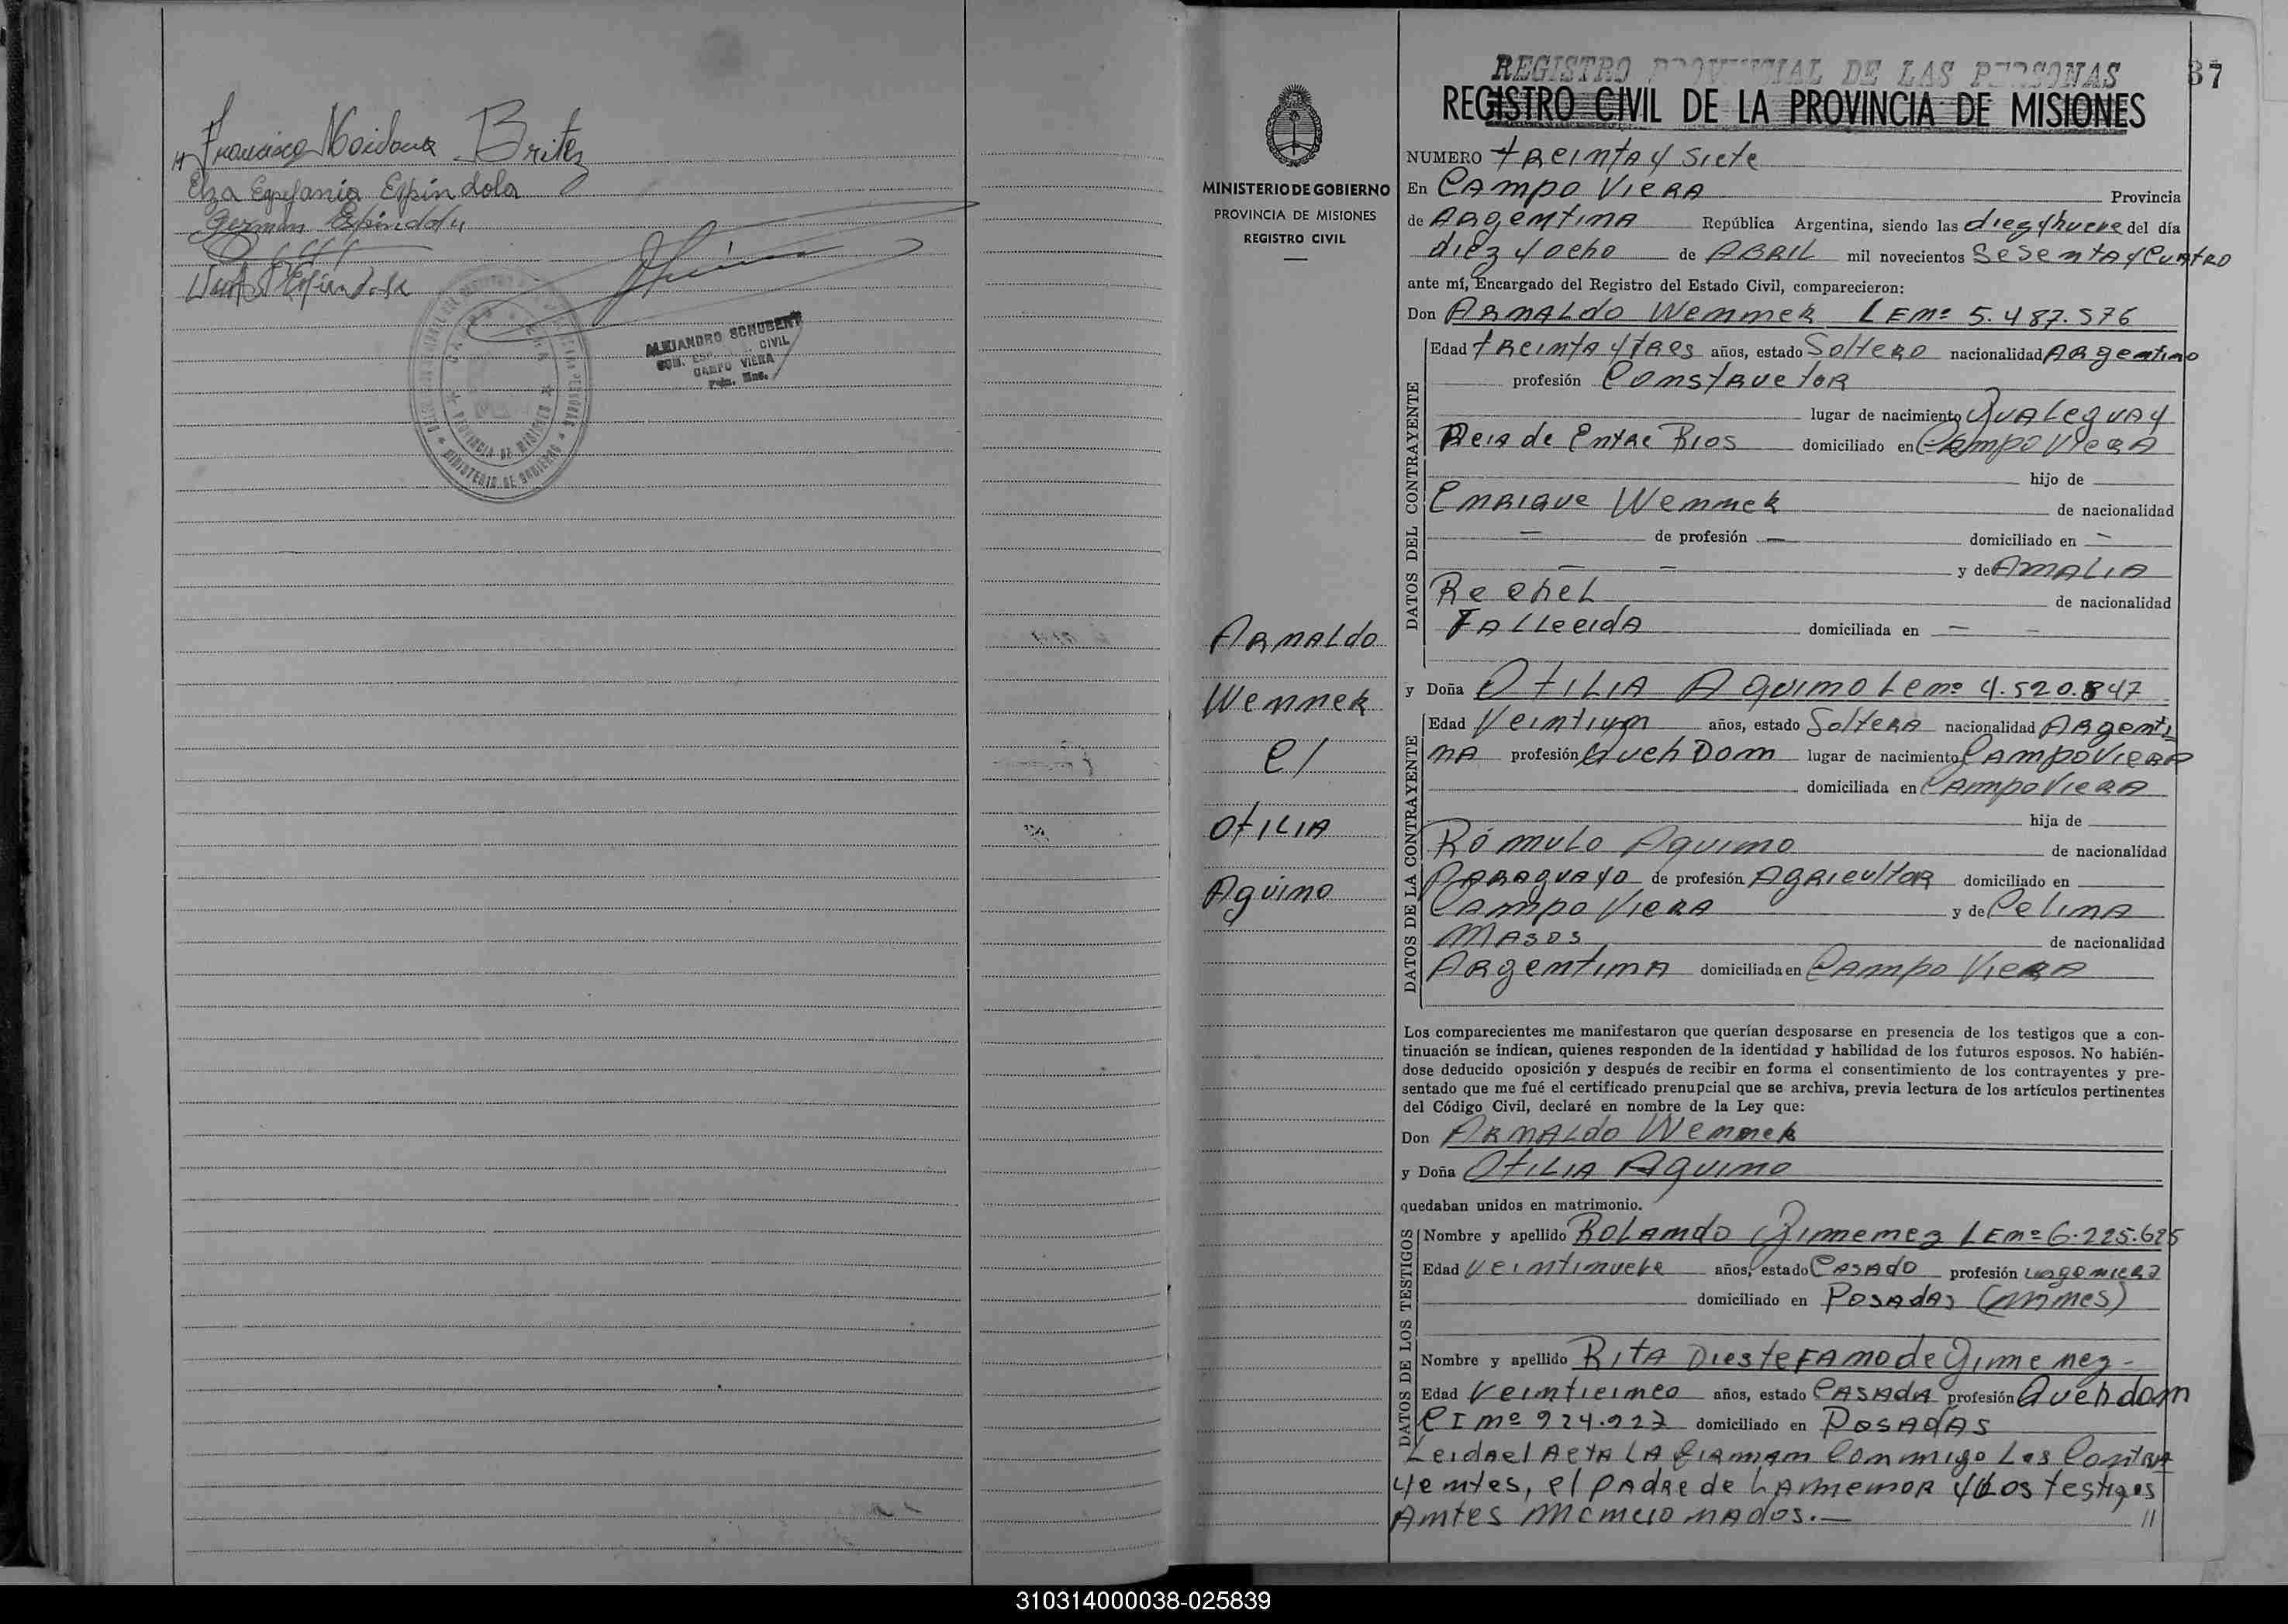 Francisco Maidana Britez
Elza Epifania Espíndola
German Espindola
Espindola
ALEJANDRO SCHUBERT
CIVIL
CAMPO VIERA
Pcia. Mnes.
PROVINCIA DE MISIONES
MINISTERIO DE GOBIERNO
37
REGISTRO PROVINCIAL DE LAS PERSONAS
REGISTRO CIVIL DE LA PROVINCIA DE MISIONES
MINISTERIO DE GOBIERNO
PROVINCIA DE MISIONES
REGISTRO CIVIL
Arnaldo
Wenner
c/
Otilia
Aquino
NUMERO treinta y siete
En Campo Viera Provincia
de Argentina República Argentina, siendo las diez y nueve del día
diez y ocho de Abril mil novecientos sesenta y cuatro
ante mí, Encargado del Registro del Estado Civil, comparecieron:
Don Arnaldo Wenner LE Nº 5.487.576
DATOS DEL CONTRAYENTE
Edad treinta y tres años, estado Soltero nacionalidad Argentino
profesión Constructor
lugar de nacimiento Gualeguay
Pcia de Entre Rios domiciliado en Campo Viera
hijo de
Enrique Wenner de nacionalidad
— de profesión — domiciliado en —
— — y de Amalia
Rechel de nacionalidad
Fallecida domiciliada en — —
y Doña Otilia Aquino LE Nº 4.520.847
DATOS DE LA CONTRAYENTE
Edad Veintiun años, estado Soltera nacionalidad Argenti=
na profesión Queh Dom lugar de nacimiento Campo Viera
domiciliada en Campo Viera
hija de
Rómulo Aquino de nacionalidad
Paraguayo de profesión Agricultor domiciliado en
Campo Viera y de Celina
Masos de nacionalidad
Argentina domiciliada en Campo Viera
Los comparecientes me manifestaron que querían desposarse en presencia de los testigos que a con-
tinuación se indican, quienes responden de la identidad y habilidad de los futuros esposos. No habién-
dose deducido oposición y después de recibir en forma el consentimiento de los contrayentes y pre-
sentado que me fué el certificado prenupcial que se archiva, previa lectura de los artículos pertinentes
del Código Civil, declaré en nombre de la Ley que:
Don Arnaldo Wenner
y Doña Otilia Aquino
quedaban unidos en matrimonio.
DATOS DE LOS TESTIGOS
Nombre y apellido Rolando Gimenez LE Nº 6.225.625
Edad Veintinueve años, estado Casado profesión
domiciliado en Posadas (Mnes)
Nombre y apellido Rita Diestefano de Gimenez -
Edad Veinticinco años, estado Casada profesión Queh dom
CI Nº 924.927 domiciliado en Posadas
Leida el Acta la firman conmigo los Contra
yentes, el padre de la menor y los testigos
antes mencionados.— //
310314000038-025839